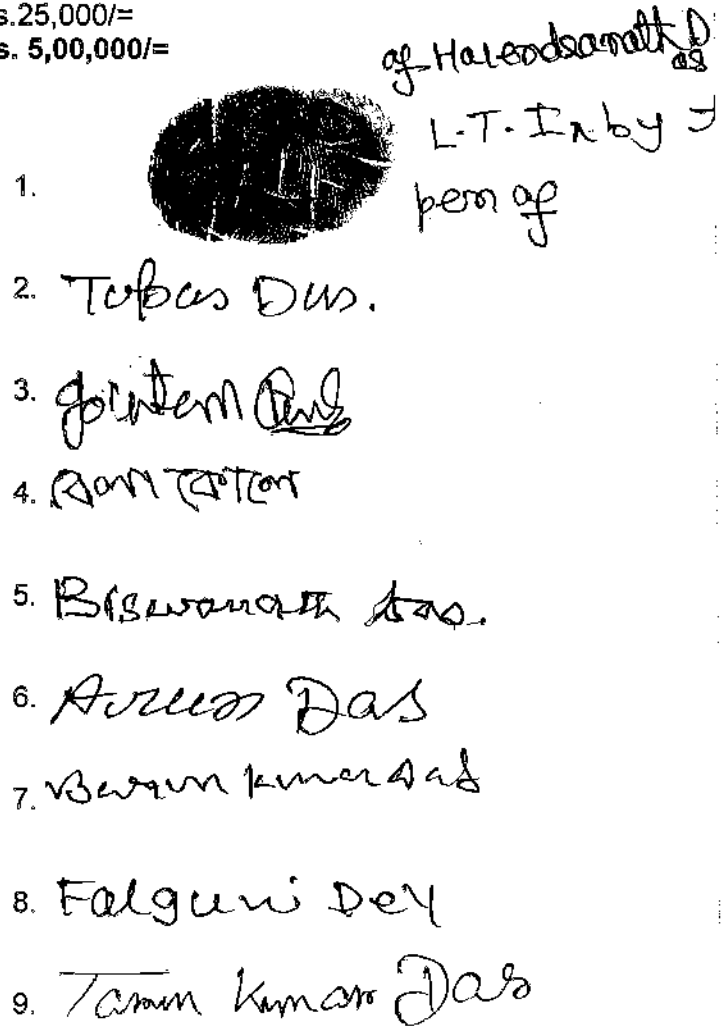 s.25,000/=
s. 5,00,000/=
of Harendranath D
as
L.T. In by
1.
pen of
2. Tapas Das.
3. Goutam
4.
5. Biswanath Das.
6. Arun Das
7. Barun Kumar Das
8. Falguni Dey
9. Tarun Kumar Das